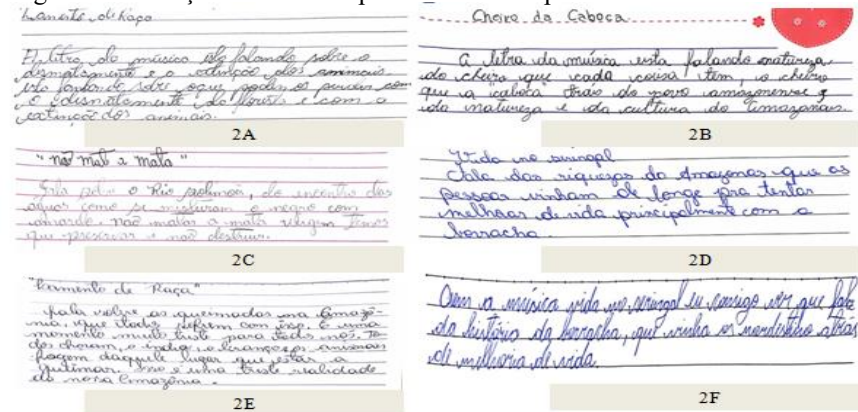 Lamento de Raça
A letra da música está falando sobre o
desmatamento e o extinção dos animais
isto falando sobre oque podemos perder com
o edesmatamente da florest e com a
extinção dos animais.
2A
Cheiro da Caboca
A letra da música esta falando natureza
do cheiro que cada coisa tem, o cheiro
que a "caboca" trás do povo amazonense
da natureza e da cultura do Amazonas.
2B
"não mat a mata"
Fala sobre o Rio solimões, do encontro das
águas como se misturam o negro com
amarelo não matar a mata virgem temos
que preservar e não destruir.
2C
Vida no siringal
Fala das riquezas do Amazonas que as
pessoas vinham de longe pra tentar
melhoar de vida principalmente com a
borracha.
2D
"Lamento de Raça"
fala sobre as queimadas na Amazô-
nia, que todos sofrem com isso. E uma
momento muito triste para todos nós, To-
dos choram, o índio, o crianças, animais
foogem daquele lugar que estar a
queimar. Isso e uma triste realidade
da nossa Amazônia.
2E
Com a música vida no seringal eu consigo ver que fala
da história da borracha, que vinha os nordestino atras
de melhoria de vida.
2F